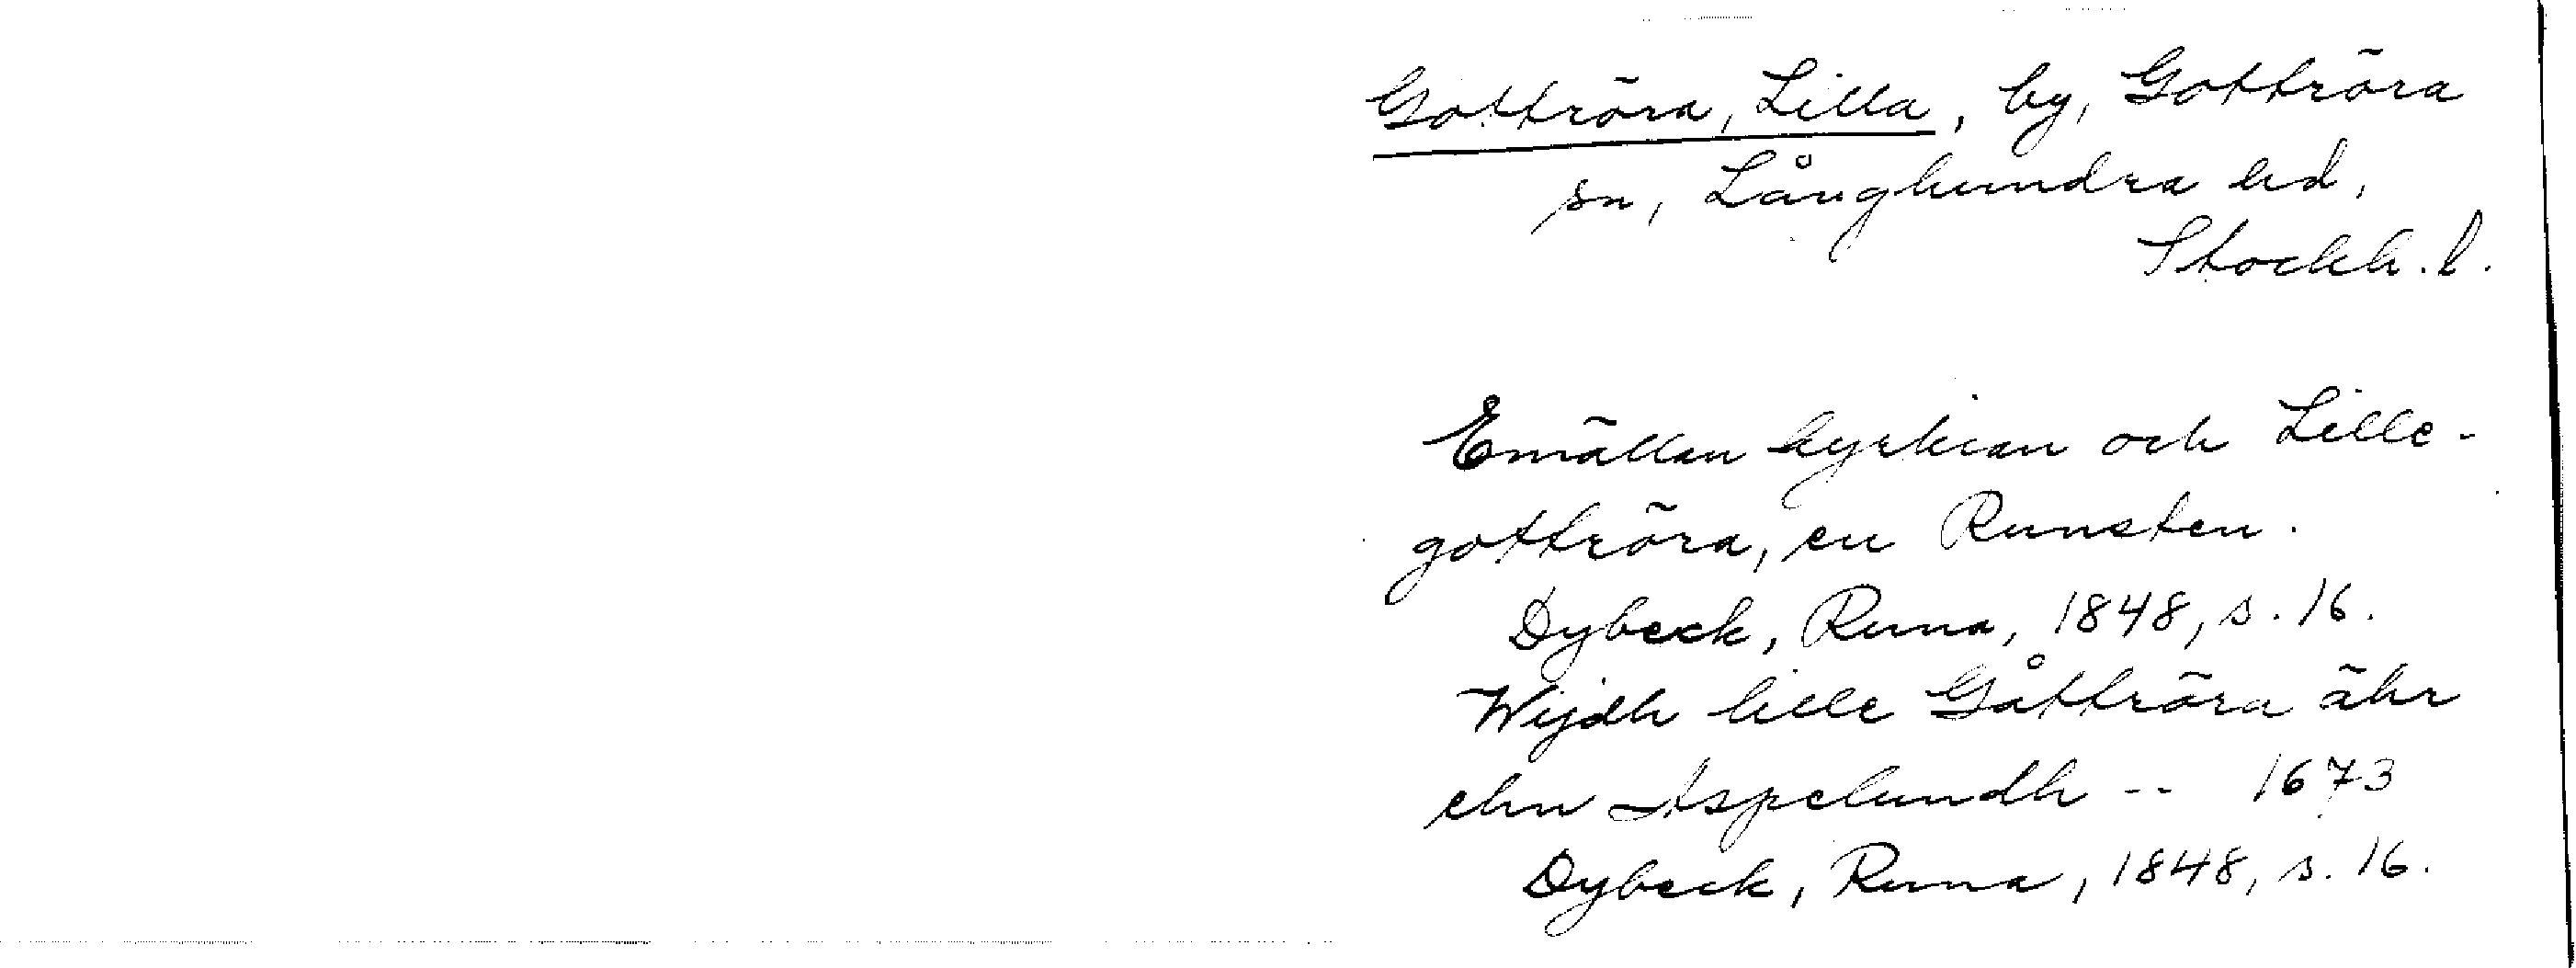 Gottröra, Lilla, by, Gottröra
sn, Långhundra hd,
Stockh. l.
Emällan kyrkian och Lille-
gottröra, en Runsten.
Dybeck, Runa, 1848, s. 16.
Wijdh lille Gåttröra ähr
ehn Aspelundh -- 1673
Dybeck, Runa, 1848, s. 16.